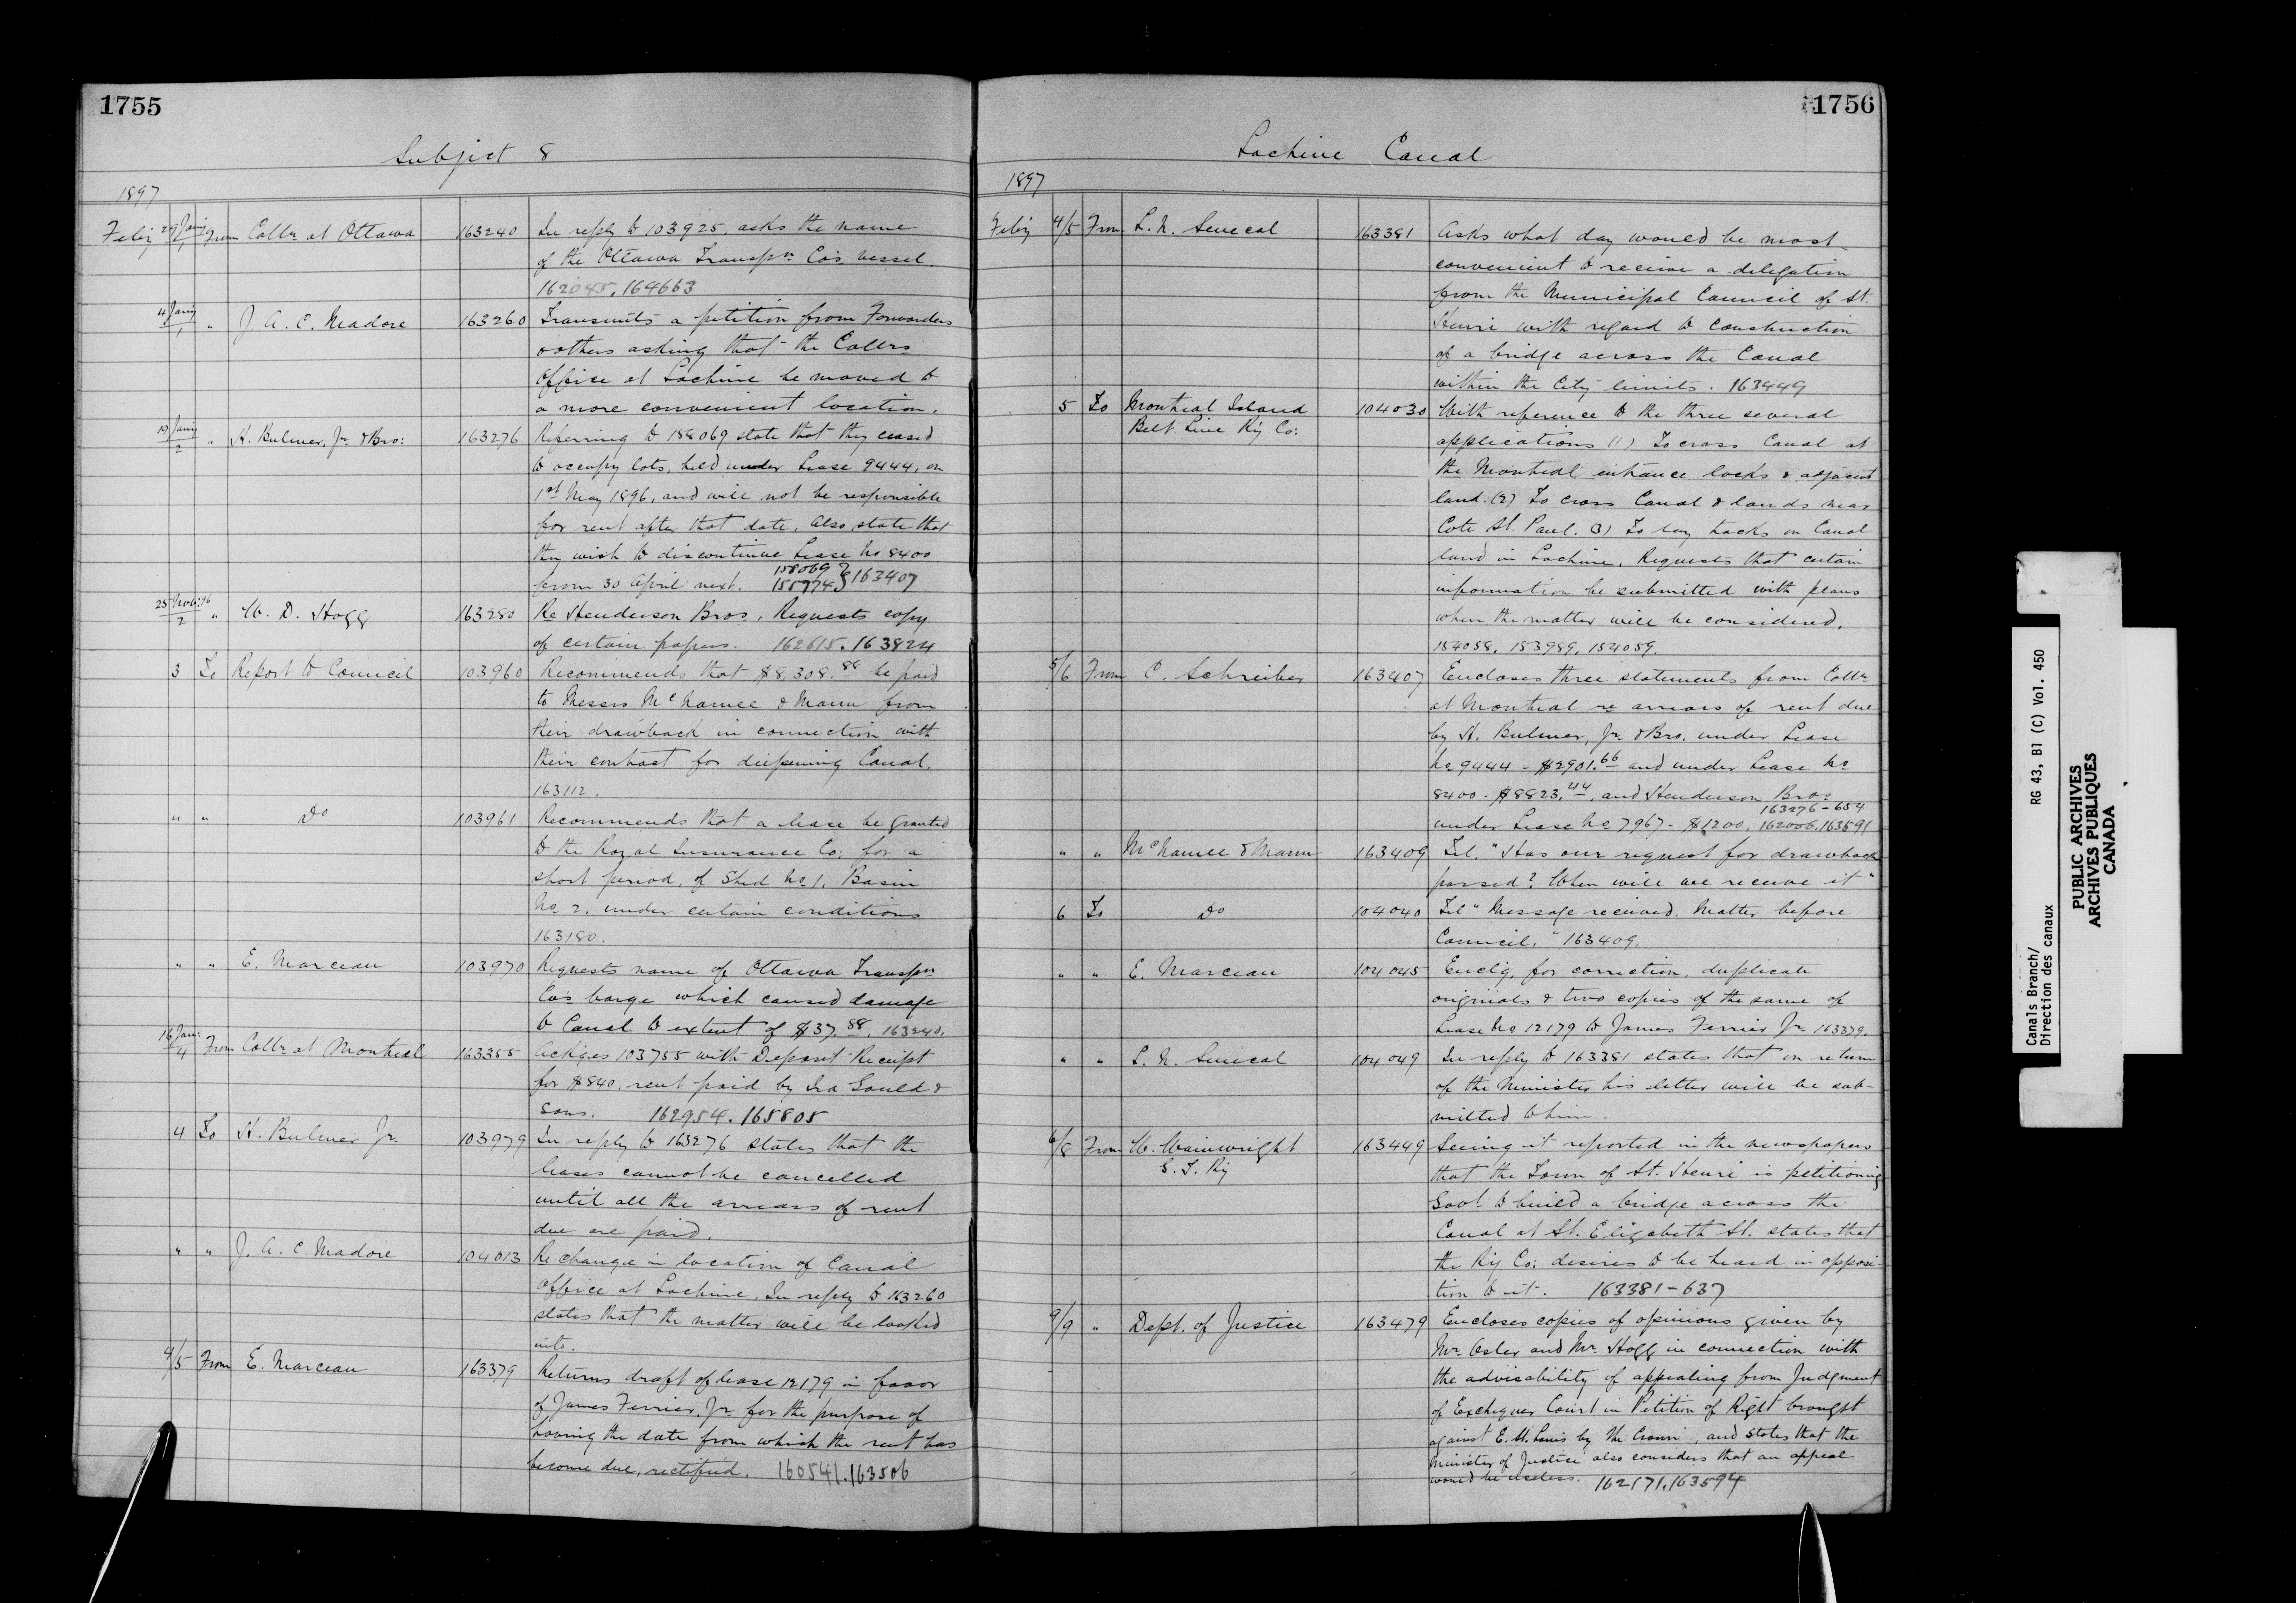 1755
Subject 8
1897
Feby 29 Jany/1 From Collr at Ottawa 163240 In reply to 103925, asks the name
of the Ottawa Transpn Co's vessel.
162045, 164663
4 Jany/1 " J. A. C. Madore 163260 Transmits a petition from Forwarders
& others asking that the Collrs
Office at Lachine be moved to
a more convenient location.
19 Jany/2 " H. Bulmer, Jr. & Bro: 163276 Referring to 158069 state that they ceased
to occupy lots, held under Lease 9444, on
1st May 1896, and will not be responsible
for rent after that date. Also state that
they wish to discontinue Lease No 8400
from 30 April next. 158069 155774 } 163407
25 Nov: 96/2 " W. D. Hogg 163280 Re Henderson Bros. Requests copy
of certain papers. 162615. 163824
3 To Report to Council 103960 Recommends that $8,308.88 be paid
to Messrs McNamee & Mann from
their drawback in connection with
their contract for deepening Canal.
163112.
" " Do 103961 Recommends that a lease be granted
to the Royal Insurance Co: for a
short period, of Shed No 1, Basin
No 2, under certain conditions
163180.
" " E. Marceau 103970 Requests name of Ottawa Transpn
Co's barge which caused damage
to Canal to extent of $37.88. 163240.
16 Jan:/4 From Collr at Montreal 163355 Ack'ges 103755 with Deposit Receipt
for $840, rent paid by Ira Gould &
Sons. 162954. 165805
4 To H. Bulmer Jr. 103979 In reply to 163276 states that the
leases cannot be cancelled
until all the arrears of rent
due are paid.
" " J. A. C. Madore 104013 Re change in location of Canal
Office at Lachine. In reply to 163260
states that the matter will be looked
into.
4/5 From E. Marceau 163379 Returns draft of lease 12179 in favor
of James Ferrier, Jr for the purpose of
having the date from which the rent has
become due, rectified. 160541. 163506
1756
Lachine Canal
1897
Feby 4/5 From L. N. Senecal 163381 Asks what day would be most
convenient to receive a delegation
from the Municipal Council of St.
Henri with regard to construction
of a bridge across the Canal
within the City limits. 163449
5 To Montreal Island 104030 With reference to the three several
Belt Line Ry Co: applications (1) To cross Canal at
the Montreal entrance locks & adjacent
land. (2) To cross Canal & lands near
Cote St. Paul. (3) To lay tracks on Canal
land in Lachine. Requests that certain
information be submitted with plans
when the matter will be considered.
154058, 153989, 154059.
5/6 From C. Schreiber 163407 Encloses three statements from Collr
at Montreal re arrears of rent due
by H. Bulmer, Jr. & Bro. under Lease
No 9444 - $2901.66 and under Lease No
8400 - $8823.44, and Henderson Bros
163276-654
under Lease No 7967 - $1200. 162006. 163591
" " McNamee & Mann 163409 Tel. "Has our request for drawback
passed? When will we receive it"
6 To Do 104040 Tel "Message received. Matter before
Council." 163409.
" " E. Marceau 104045 Enclg, for correction, duplicate
originals & two copies of the same of
Lease No 12179 to James Ferrier Jr. 163379.
" " L. N. Senecal 104049 In reply to 163381 states that on return
of the Minister his letter will be sub-
mitted to him.
6/8 From W. Wainwright 163449 Seeing it reported in the newspapers
G. T. Ry
that the Town of St. Henri is petitioning
Govt. to build a bridge across the
Canal at St. Elizabeth St. states that
the Ry Co: desires to be heard in opposi-
tion to it. 163381-637
9/9 " Dept. of Justice 163479 Encloses copies of opinions given by
Mr. Osler and Mr. Hogg in connection with
the advisability of appealing from Judgment
of Exchequer Court in Petition of Right brought
against E. St. Louis by the Crown, and states that the
Minister of Justice also considers that an appeal
would be useless. 162171. 163594
Canals Branch/ RG 43, B1 (C) Vol. 450
Direction des canaux
PUBLIC ARCHIVES
ARCHIVES PUBLIQUES
CANADA